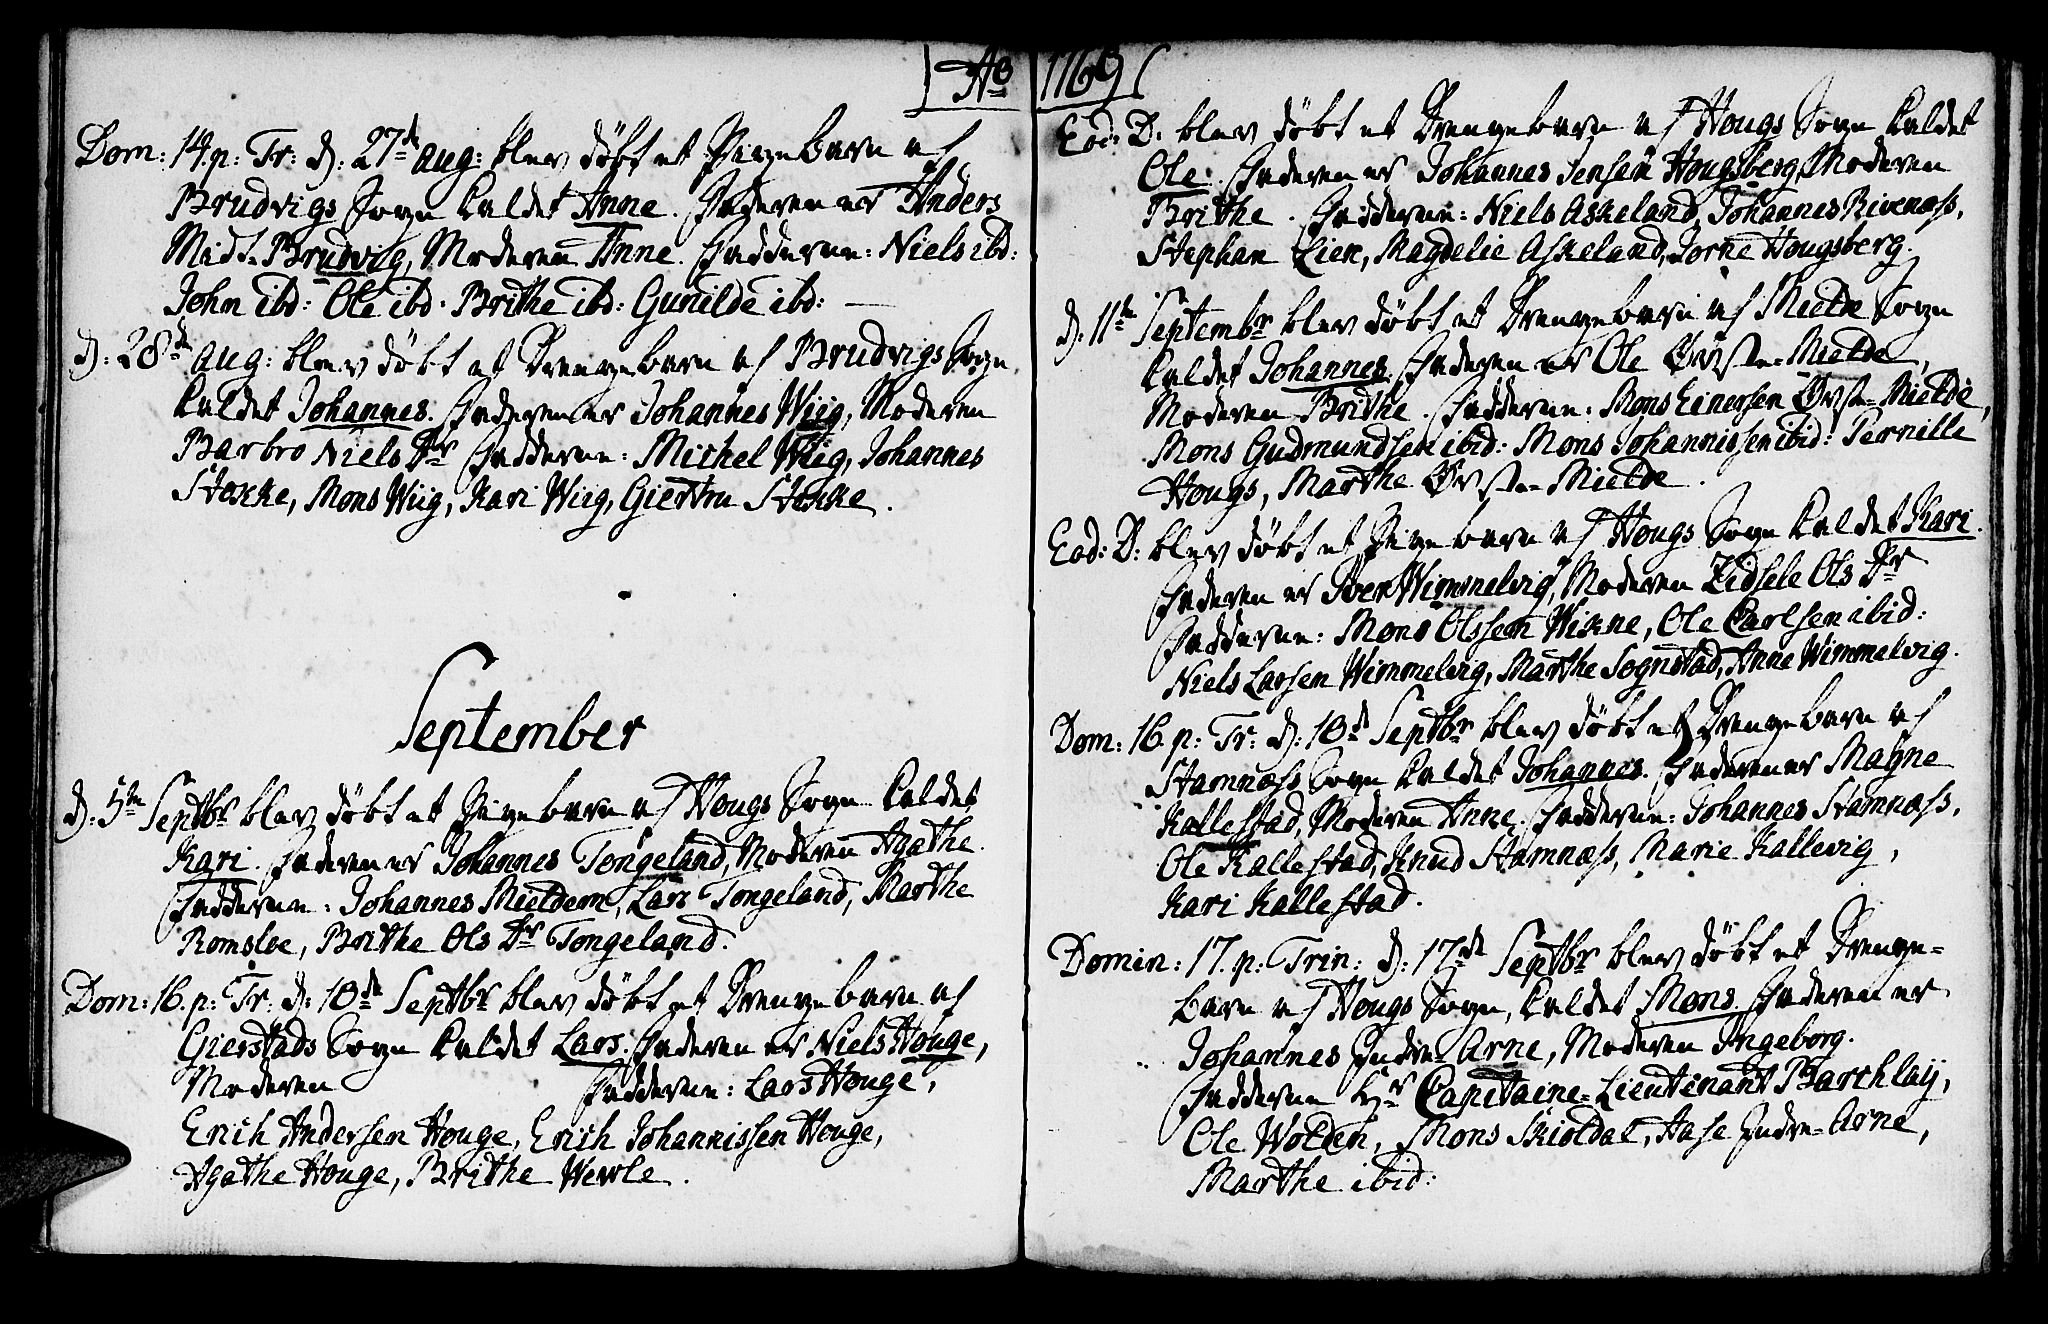 Ao 1769
Dom: 14. p: Tr: d: 27de aug: blev döbt et Pigebarn af
Brudvigs Sogn kaldet Anne. Faderen er Anders
Midt-Brudvig, Moderen Anne. Fadderne: Niels ibd:
John ibd: Ole ibd. Brithe ibd: Gunilde ibd:
d: 28de aug: blev döbt et Drengebarn af Brudvigs Sogn
kaldet Johannes. Faderen er Johannes Wiig, Moderen
Barbro Niels Dr Fadderne: Michel Wiig, Johannes
Stokke, Mons Wiig, Kari Wiig, Giertru Stokke.
September
d: 5te Septbr blev döbt et Pigebarn af Hougs Sogn kaldet
Kari. Faderen er Johannes Tongeland, Moderen Agathe.
Fadderne: Johannes Mieldem, Lars Tongeland, Marthe
Romsloe, Brithe Ols Dr Tongeland.
Dom: 16. p: Tr: d: 10de Septbr blev döbt et Drengebarn af
Gierstads Sogn kaldet Lars. Faderen er Niels Houge,
Moderen Fadderne: Lars Houge,
Erich Andersen Houge, Erich Johannissen Houge,
Agathe Houge, Brithe Wevle.
Eod: D: blev döbt et Drengebarn af Hougs Sogn kaldet
Ole. Faderen er Johannes Jensen Hougsberg, Moderen
Brithe. Fadderne: Niels Askeland, Johannes Rivenæss,
Stephan Lien, Magdelie Askeland, Jorne Hougsberg.
d. 11te Septembr blev döbt et Drengebarn af Mielde Sogn
kaldet Johannes. Faderen er Ole Øvste-Mielde,
Moderen Brithe. Fadderne: Mons Einersen Øvste-Mielde,
Mons Gudmundsen ibid: Mons Johannissen ibid: Pernille
Hougs, Marthe Øvste-Mielde.
Eod: D: blev döbt et Pigebarn af Hougs Sogn kaldet Kari.
Faderen er Iver Wimmelvig, Moderen Zidsele Ols Dr
Fadderne: Mons Olssen Wikne, Ole Carlsen ibid:
Niels Larsen Wimmelvig, Marthe Sognstad, Anne Wimmelvig.
Dom: 16. p: Tr: d: 10de Septbr blev döbt et Drengebarn af
Stamnæss Sogn kaldet Johannes. Faderen er Magne
Kallestad, Moderen Anne. Fadderne: Johannes Stamnæss,
Ole Kallestad, Knud Stamnæss, Marie Kallevig,
Kari Kallestad.
Domin: 17. p: Trin: d: 17de Septbr blev döbt et Drenge-
barn af Hougs Sogn, kaldet Mons. Faderen er
Johannes Indre-Arne, Moderen Ingeborg.
Fadderne Hr Capitaine-Lieutenant Barchlaÿ,
Ole Wolden, Mons Skioldal, Aase Indre-Arne,
Marthe ibid: